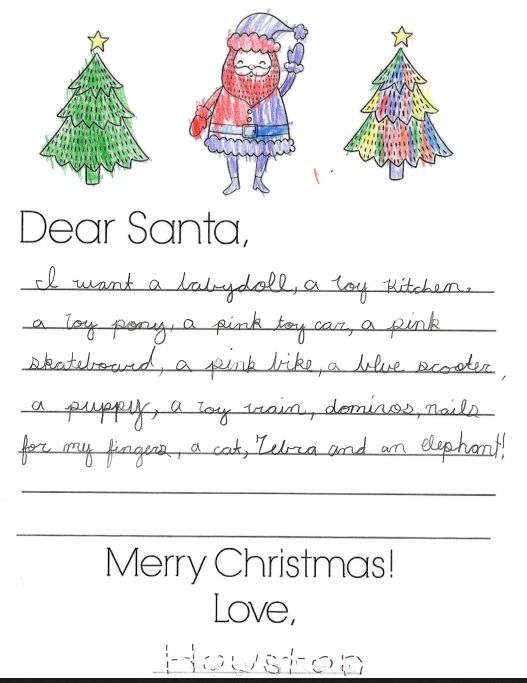 Dear Santa,
I want a babydoll, a toy kitchen,
a toy pony, a pink toy car, a pink
skateboard, a pink bike, a blue scooter,
a puppy, a toy train, dominos, nails
for my fingers, a cat, Zebra and an elephant!
Merry Christmas!
Love,
Houston